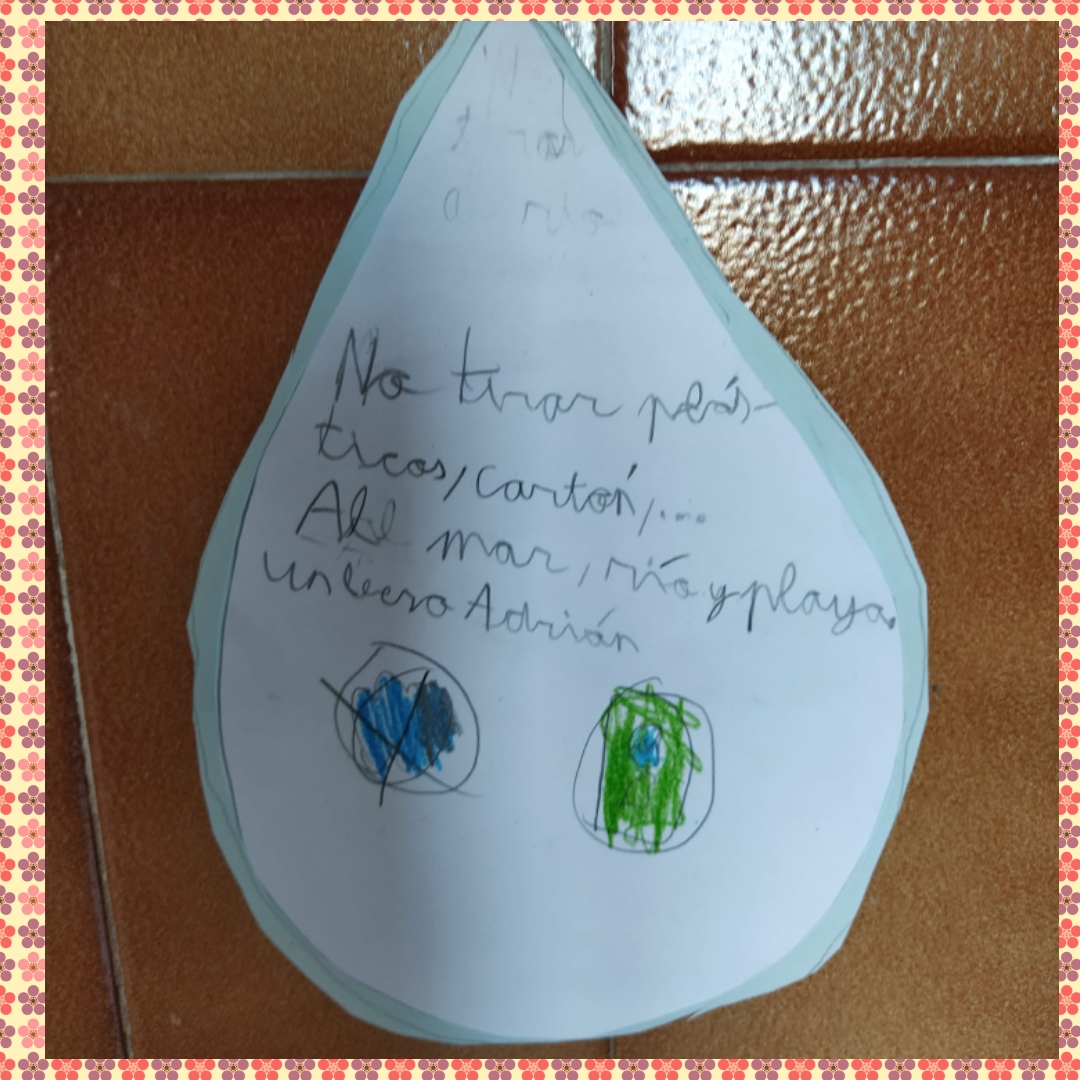 tirar
a río
No tirar plás-
ticos/cartón/...
All mar, río y playa.
un beso Adrián